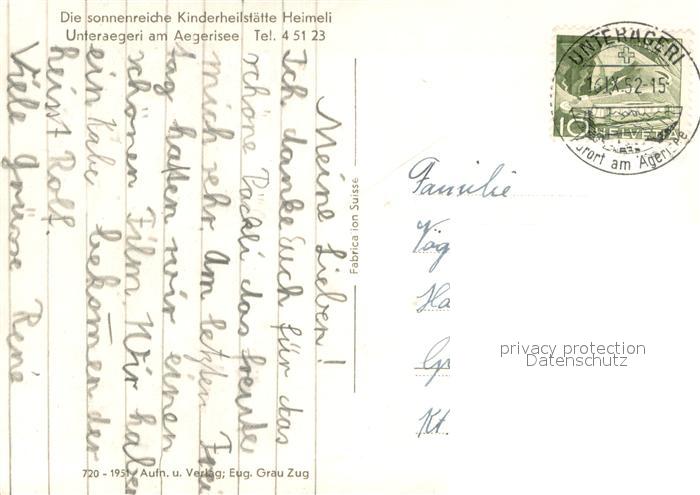 Die sonnenreiche Kinderheilstätte Heimeli
Unteraegeri am Aegerisee Tel. 4 51 23
Meine Lieben!
Ich danke Euch für das
schöne Päckli das freute
mich sehr. Am letzten Frei
tag hatten wir einen
schönen Film. Wir haben
ein Käbi bekomen der
heisst Rolf.
Viele Grüsse René
720 - 1951 Aufn. u. Verlag; Eug. Grau Zug
Fabrication Suisse
UNTERÄGERI
16.IX.52-15
10 HELVETIA
Kurort am Ägeri-See
Familie
Väg
Ha
Gr
Kt.
privacy protection
Datenschutz